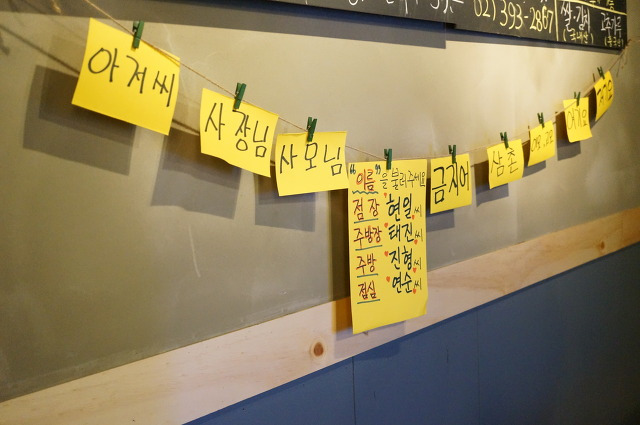 02)393-2867
쌀·김치
고추가루
아저씨
사장님
사모님
"이름"을 불러주세요
점장 현일씨
주방장 태진씨
주방 진형씨
점심 연순씨
금지어
삼촌
여기요